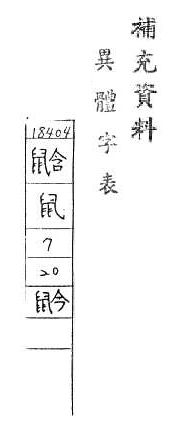 補充資料
異體字表
18404
䶃
鼠
7
20
䶖